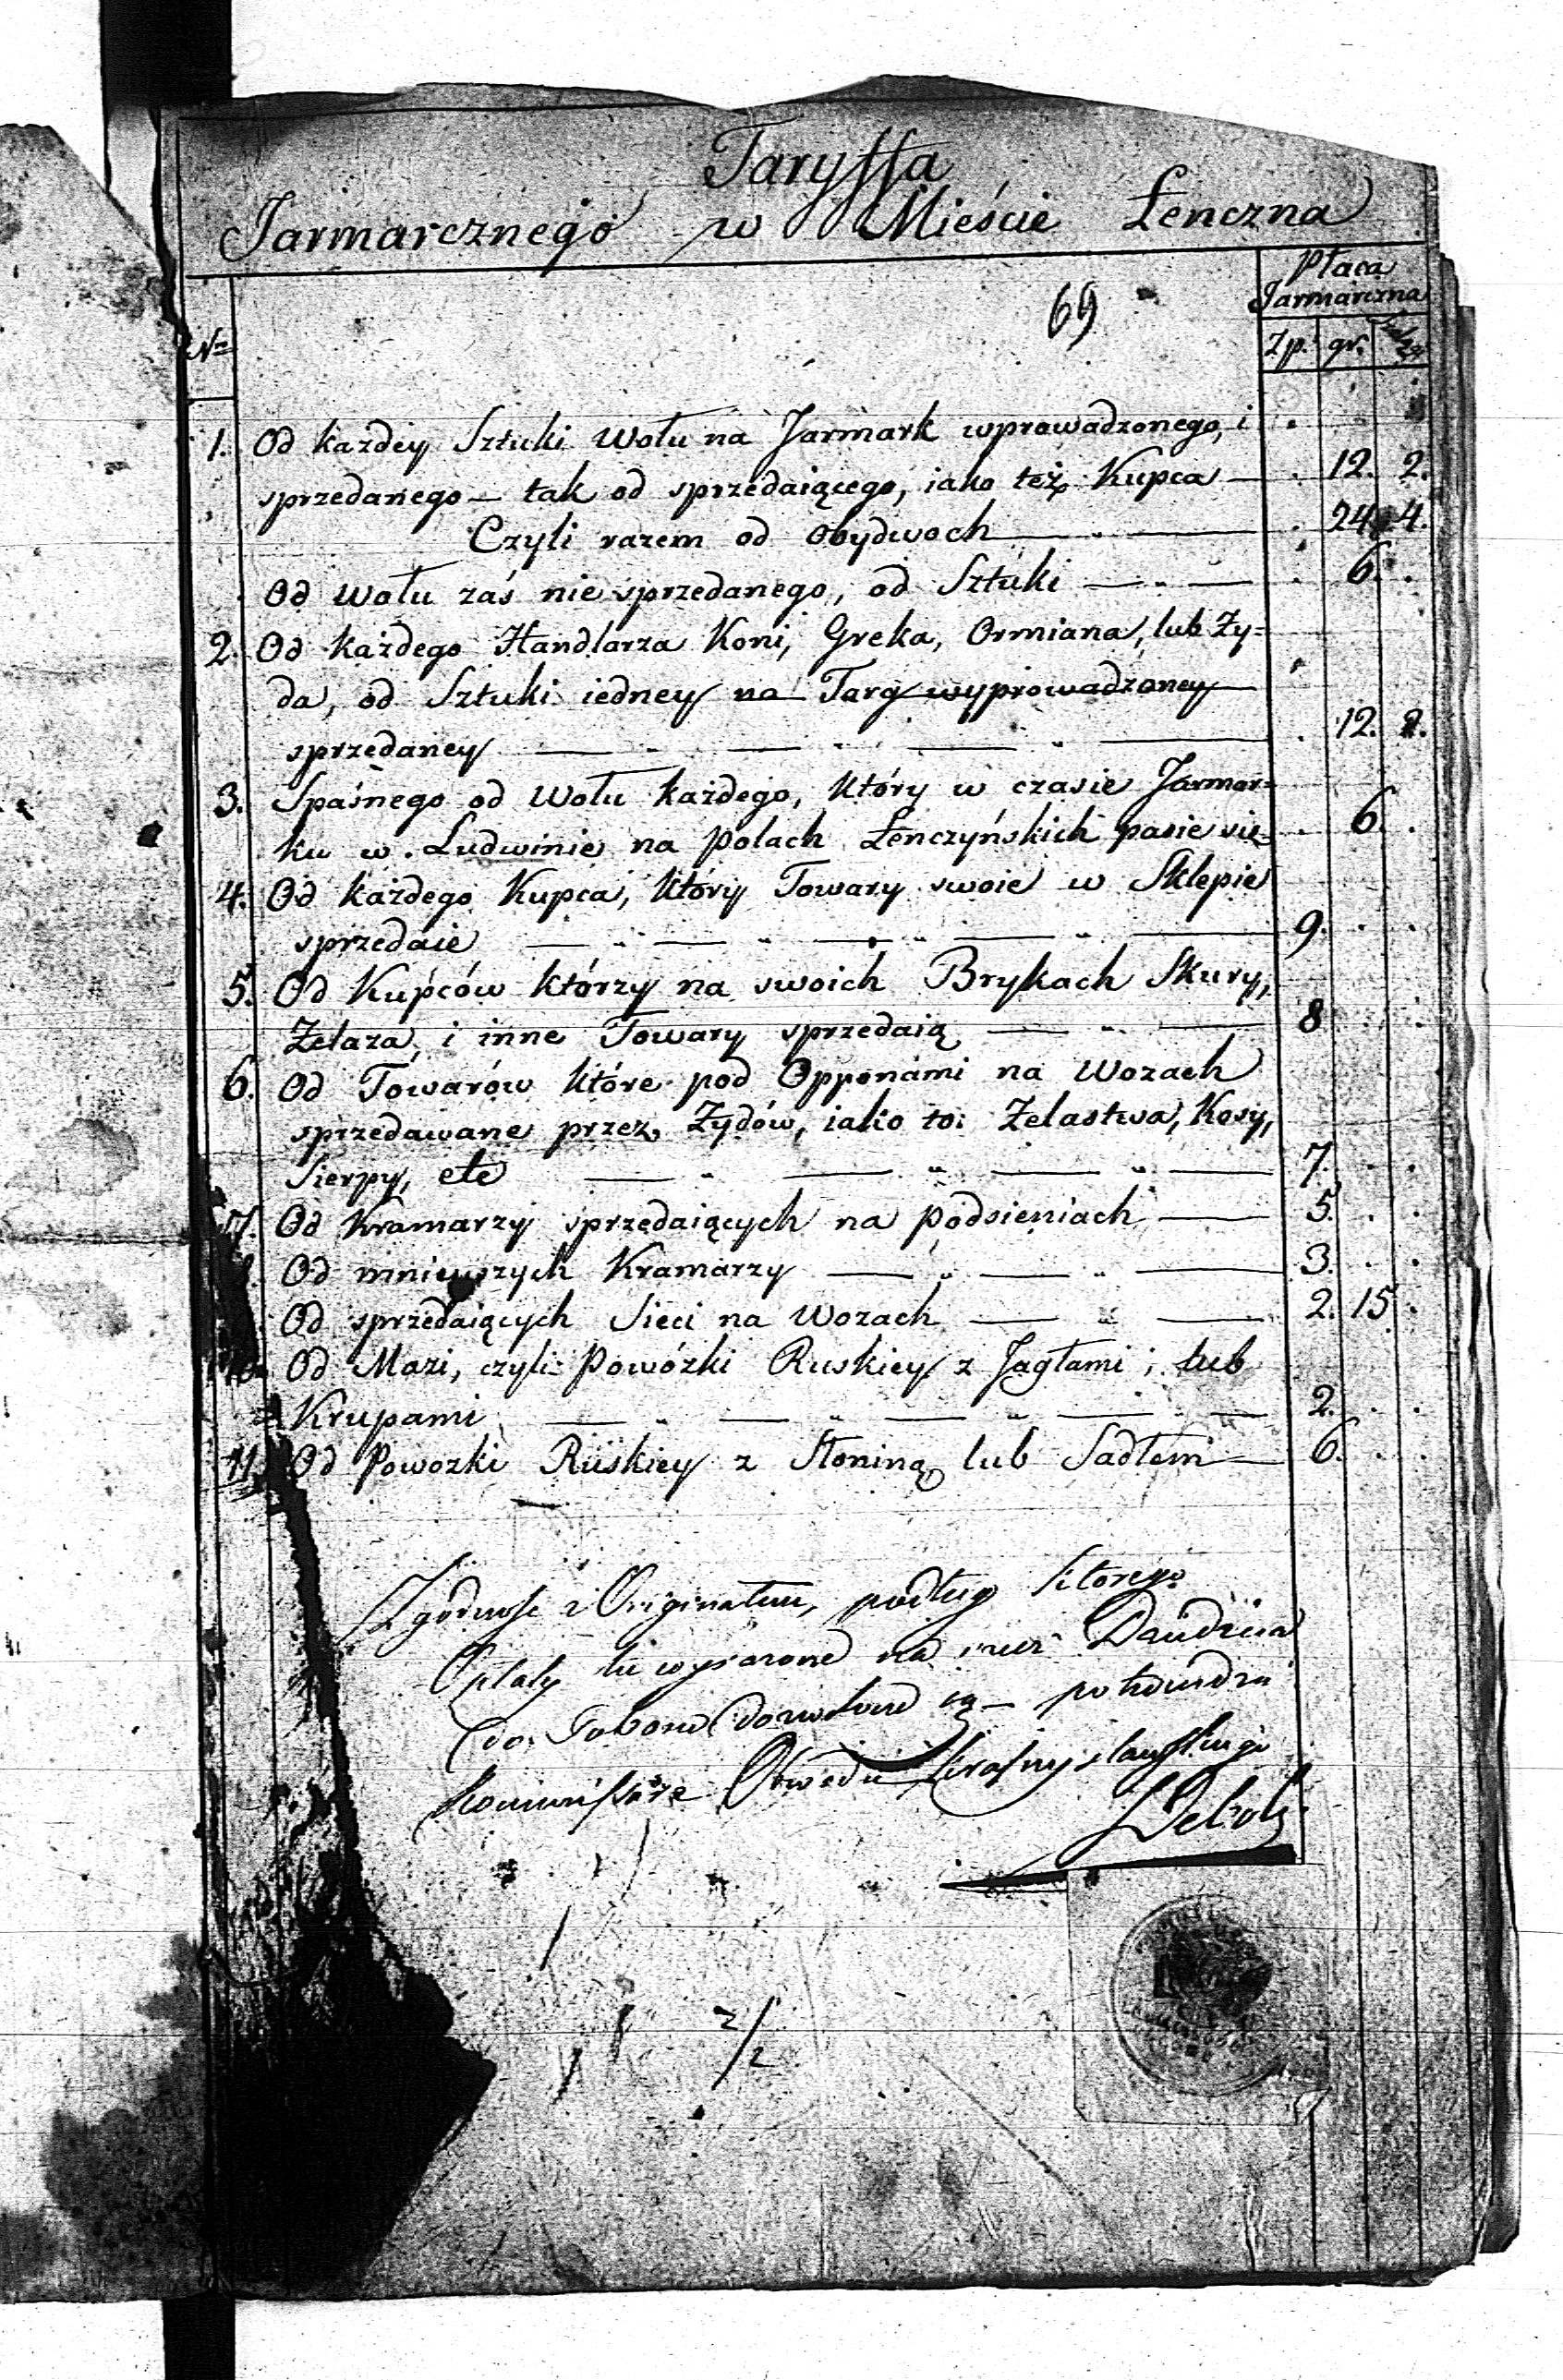 Taryffa
Jarmarcznego w Mieście Łenczna
Płaca
Jarmarczna
69
Nro
Zp. gr.
1. Od każdey Sztuki Wołu na Jarmark wprowadzonego, i
sprzedanego — tak od sprzedaiącego, iako też Kupca — . 12. 2.
Czyli razem od Obydwoch — " — . 24. 4.
Od Wołu zaś nie sprzedanego, od Sztuki — " — . 6. .
2. Od każdego Handlarza Koni, Greka, Ormiana, lub Ży=
da, od Sztuki iedney na Targ wyprowadzoney
sprzedaney — " — " — " — . 12. 2.
3. Spaśnego od Wołu każdego, który w czasie Jarmar=
ku w Ludwinie na Polach Łenczyńskich pasie się . 6. .
4. Od każdego Kupca, który Towary swoie w Sklepie
sprzedaie — " — " — " — " — 9. . .
5. Od Kupców którzy na swoich Brykach Skury,
Żelaza, i inne Towary sprzedaią — " — 8 . .
6. Od Towarów które pod Opponami na Wozach
sprzedawane przez Żydów, iako to: Żelastwa, Kosy,
Sierpy, etc — " — " — " — 7. . .
7. Od Kramarzy sprzedaiących na Podsieniach — 5. . .
Od mnieyszych Kramarzy — " — " — 3. . .
Od sprzedaiących Sieci na Wozach — " — 2. 15 .
10. Od Mazi, czyli Powózki Ruskiey z Jagłami, lub
Krupami — " — " — " — " — 2. . .
11. Od Powozki Ruskiey z Słoniną lub Sadłem — 6. . .
Zgodność z Originałem, podług którego
Opłaty tu wyrażone na
do Poboru dozwolone są — potwierdza
Kommissarz Obwodu Krasnystawskiego
2/2